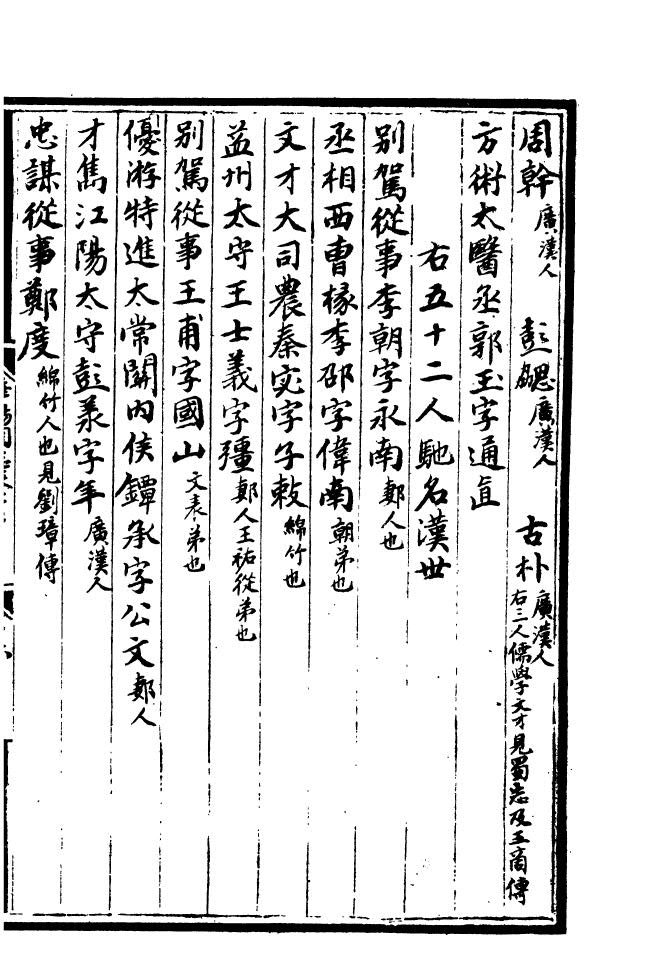 周幹廣漢人 彭勰廣漢人 古朴廣漢人右三人儒學文才見蜀志及王商傳
方術太醫丞郭玉字通直
右五十二人馳名漢世
别駕從事李朝字永南郪人也
丞相西曹掾李邵字偉南朝弟也
文才大司農秦宓字子敕綿竹也
益州太守王士義字彊郪人王祐從弟也
别駕從事王甫字國山文表弟也
優游特進太常關內侯鐔承字公文郪人
才雋江陽太守彭羕字年廣漢人
忠謀從事鄭度綿竹人也見劉璋傳